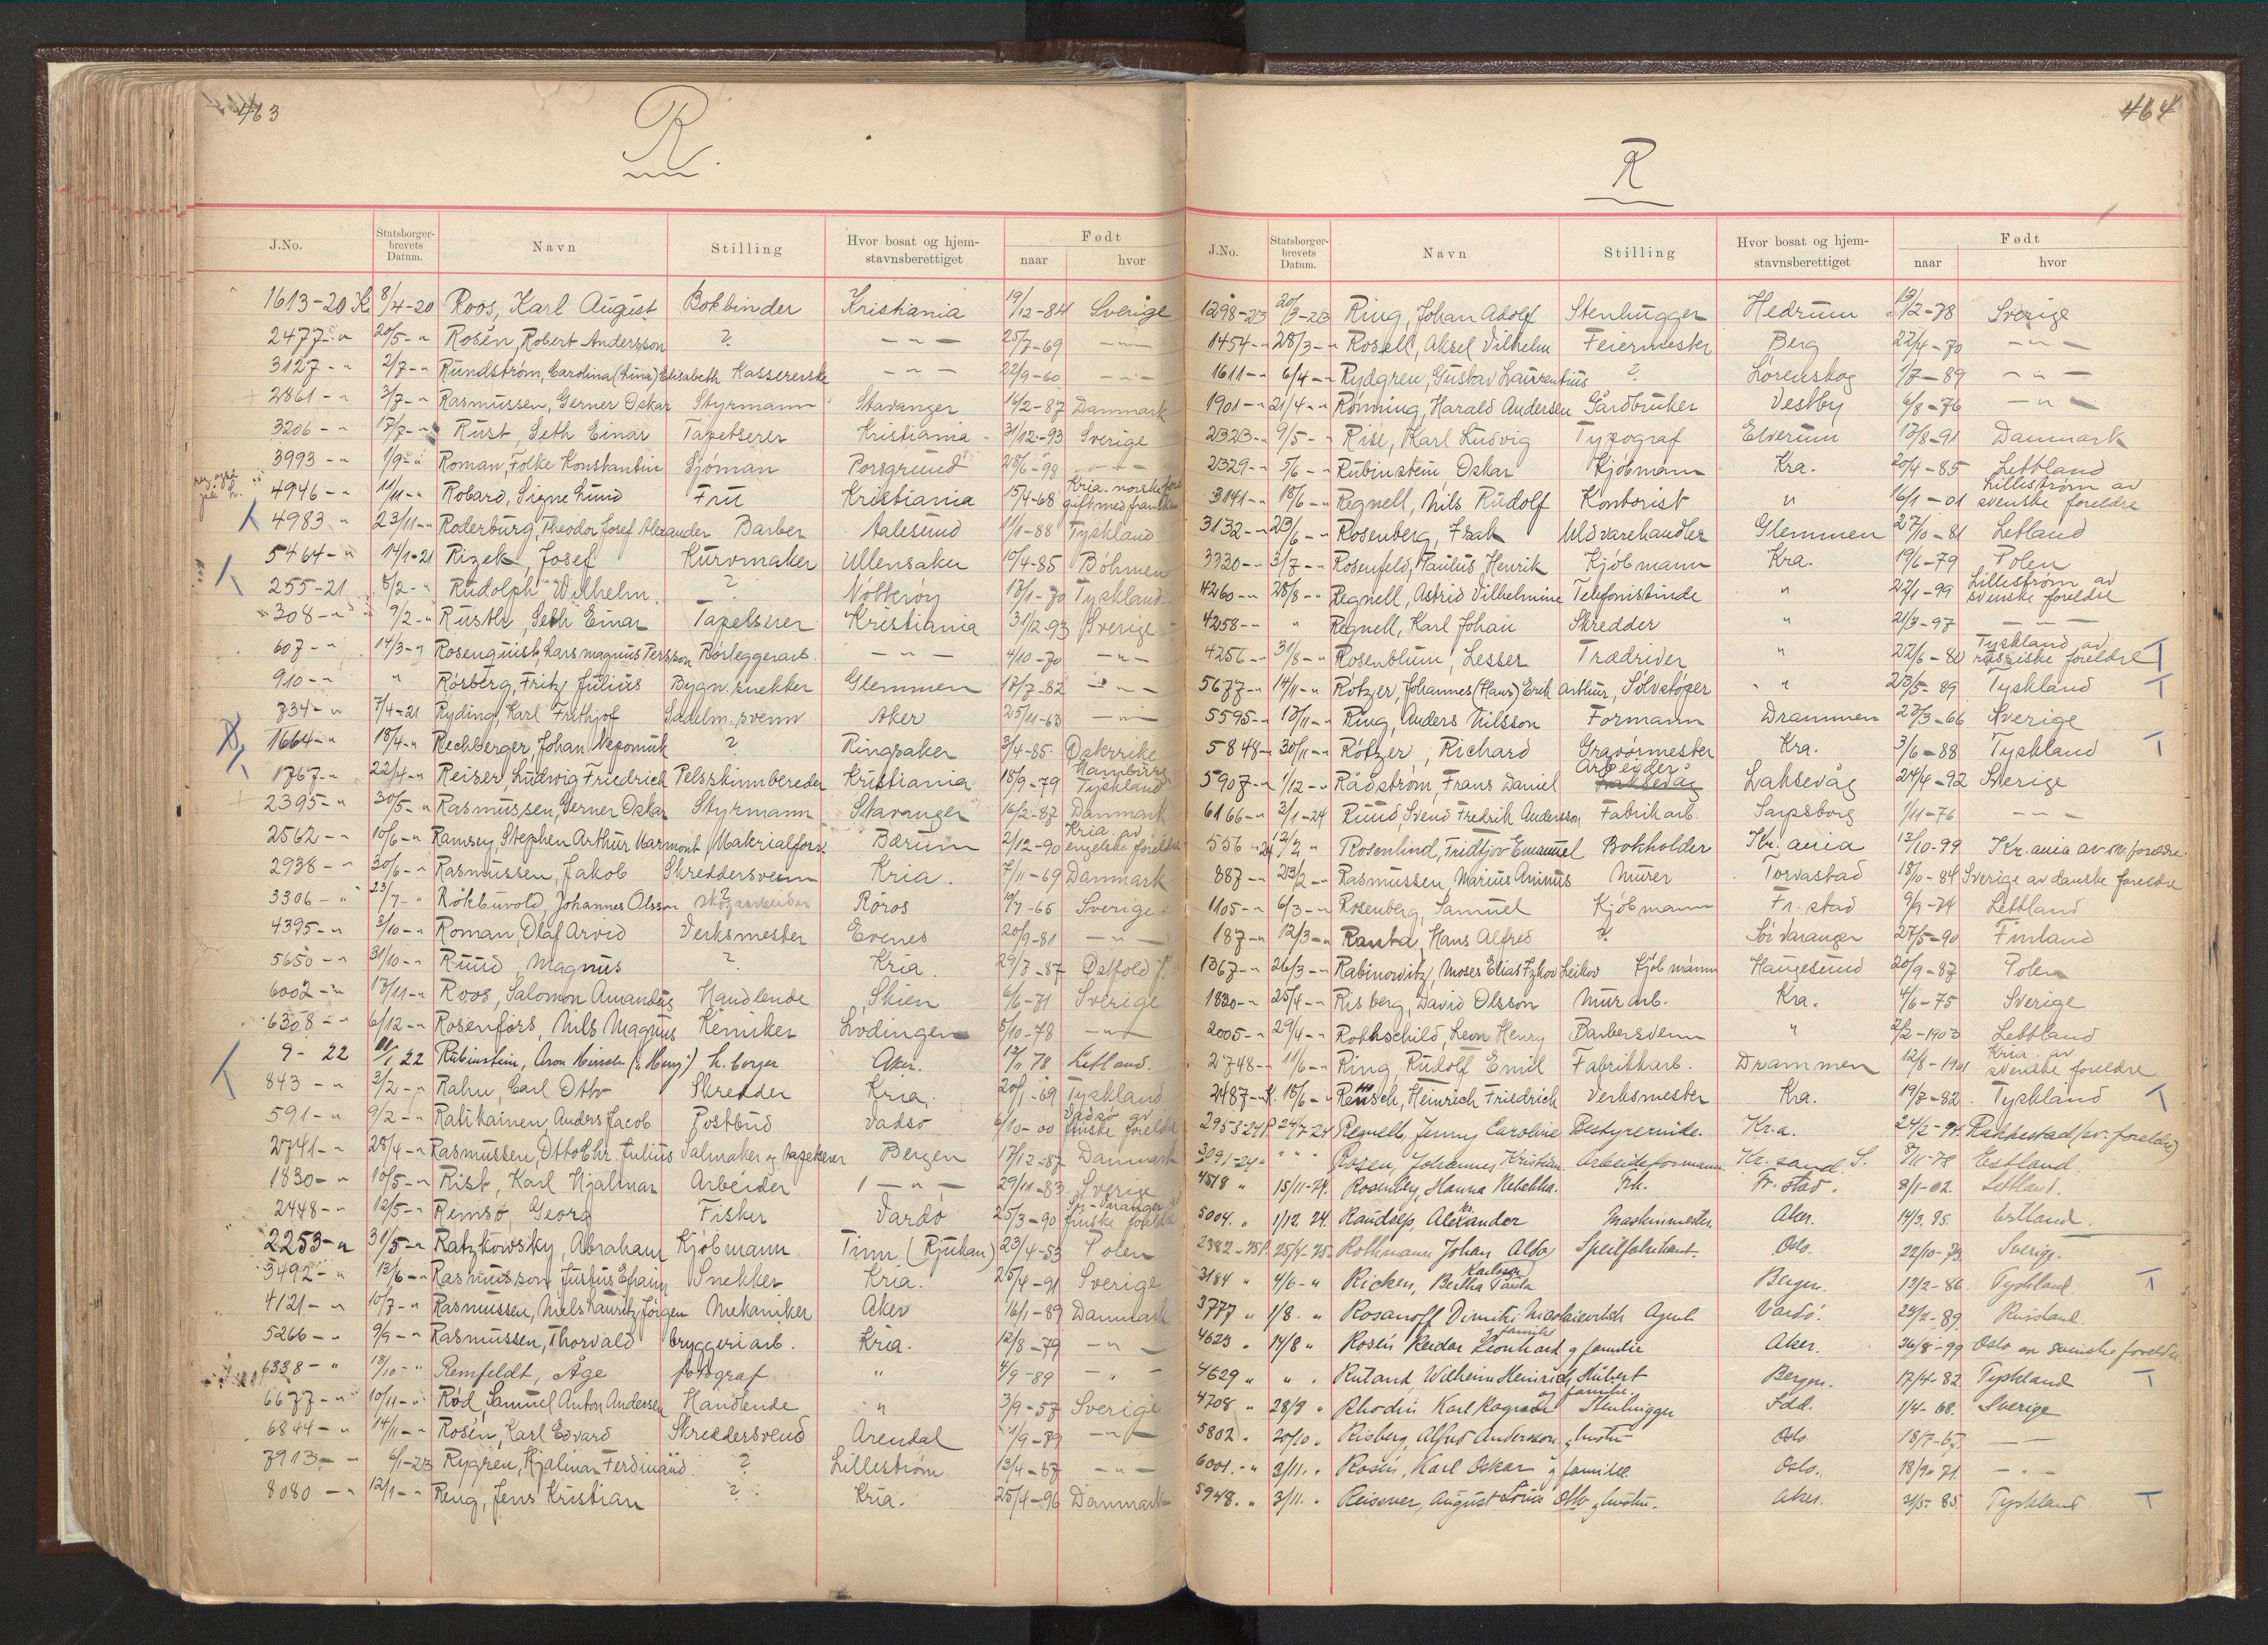 463
R.
J.No. Statsborgerbrevets Datum. Navn Stilling Hvor bosat og hjemstavnsberettiget Født naar hvor
1613-20 K 8/4-20 Roos, Karl August Bokbinder Kristiania 19/12-84 Sverige
2477-" 20/5-" Rosén, Robert Andersson ? — " — 25/7-69 — " —
3127-" 2/7-" Rundström, Carolina (Lina) Elisabeth Kassererske — " — 22/9-60 — " —
2861-" 3/7-" Rasmussen, Gerner Oskar Styrmann Stavanger 16/2-87 Danmark
3206-" 17/7-" Rust, Seth Einar Tapetserer Kristiania 31/12-93 Sverige
3993-" 1/9-" Roman, Folke Konstantin Sjöman Porsgrund 28/6-98 — " —
4946-" 11/11-" Robard, Signe Lund Fru Kristiania 15/4-68 Kria. norske gift med fransk
4983-" 23/11-" Roderburg, Theodor Josef Alexander Barber Aalesund 11/1-88 Tyskland
5464-" 14/1-21 Rizek, Josef Kurvmaker Ullensaker 10/4-85 Böhmen
255-21 8/2-" Rudolph Wilhelm ? Nötterøy 13/1-70 Tyskland
308-" 9/2-" Rusth, Seth Einar Tapetserer Kristiania 31/12-93 Sverige
607-" 14/3-" Rosenquist, Lars Magnus Persson Rörleggerarb. — " — 4/10-70 — " —
910-" " Rösberg, Fritz Julius Bygn.snekker Glemmen 17/7-82 — " —
734-" 7/4-21 Ryding, Karl Frithjof Sadelm.svenn Aker 25/11-63 — " —
1664-" 18/4-" Rechberger, Johan Nepomuk ? Ringsaker 3/4-85 Østerrike
1767-" 22/4-" Reiser, Ludwig Friedrich Pelsskinnbereder Kristiania 18/9-79 Hamburg Tyskland
2395-" 30/5-" Rasmussen, Gerner Oskar Styrmann Stavanger 16/2-87 Danmark
2562-" 10/6-" Ramsey, Stephen Arthur Marmont Materialforv. Bærum 2/12-90 Kria. av engelske foreldre
2938-" 30/6-" Rasmussen, Jakob Skreddersvenn Kria. 7/11-69 Danmark
3306-" 23/7-" Rökbuvold, Johannes Olsson ? skogsarbeider Röros 10/7-65 Sverige
4395-" 3/10-" Roman, Olaf Arvid Verksmester Evenes 20/9-81 — " —
5650-" 31/10-" Ruud, Magnus ? Kria. 29/7-87 Østfold
6002-" 17/11-" Roos, Salomon Amandus Handlende Skien 6/6-71 Sverige
6308-" 6/12-" Rosenfors, Nils Magnus Kemiker Lødingen 8/10-78 — " —
9-22 11/1 22 Rubinstein, Aron Hirsch ("Harry") h. borger Aker. 12/11 78 Letland.
843-" 3/2-" Rahn, Carl Otto Skredder Kria. 20/1-69 Tyskland
591-" 9/2-" Ratikainen, Anders Jacob Postbud Vadsø 6/10-00 Vadsø av finske foreldre
2741-" 28/4-" Rasmussen, Otto Chr. Julius Salmaker og tapetserer Bergen 17/12-87 Danmark
1830-" 10/5-" Rist, Karl Hjalmar Arbeider — " — 29/11-83 Sverige
2448-" 12/5-" Remsö, Georg Fisker Vardö 25/3-90 Sør-Varanger av finske foreldre
2253-" 31/5-" Ratzkowsky, Abraham Kjöbmann Tinn (Rjukan) 23/4-53 Polen
3492-" 13/6-" Rasmusson, Justus Efraim Snekker Kria. 25/4-91 Sverige
4121-" 10/7-" Rasmussen, Niels Lauritz Jörgen Mekaniker Aker 16/1-89 Danmark
5266-" 9/9-" Rasmussen, Thorvald bryggeriarb. Kria. 12/8-79 — " —
6338-" 18/10-" Remfeldt, Åge fotograf " 4/9-89 — " —
6677-" 10/11-" Rød, Samuel Anton Andersen Handlende " 3/9-57 Sverige
6844-" 14/11-" Rosén, Karl Edvard Skreddersvend Arendal 1/9-89 — " —
7913-" 6/1-23 Rygren, Hjalmar Ferdinand ? Lilleström 13/4-87 — " —
8080-" 12/1-" Reng, Jens Kristian ? Kria. 25/4-96 Danmark
464
R
J.No. Statsborgerbrevets Datum. Navn Stilling Hvor bosat og hjemstavnsberettiget Født naar hvor
1298-23 20/3-23 Ring, Johan Adolf Stenhugger Hedrum 13/2-78 Sverige
1454-" 28/3-" Rosell, Aksel Vilhelm Feiermester Berg 22/4-70 — " —
1611-" 6/4-" Rydgren, Gustav Laurentius ? Lørenskog 1/7-89 — " —
1901-" 21/4-" Rönning, Harald Andersen Gårdbruker Vestby 6/8-76 — " —
2323-" 9/5-" Rise, Karl Ludvig Typograf Elverum 13/8-91 Danmark
2329-" 5/6-" Rubinstein, Oskar Kjöbmann Kra. 20/4-85 Lettland
3141-" 18/6-" Regnell, Nils Rudolf Kontorist " 16/1-01 Lilleström av svenske foreldre
3132-" 23/6-" Rosenberg, Isak Uldvarehandler Glemmen 27/10-81 Letland
3330-" 3/7-" Rosenfeld, Paulus Henrik Kjöbmann Kra. 19/6-79 Polen
4260-" 28/8-" Regnell, Astrid Vilhelmine Telefonistinde " 27/1-99 Lilleström av svenske foreldre
4258-" " Regnell, Karl Johan Skredder " 21/3-97 — " —
4256-" 31/8-" Rosenblum, Lesser Trædrider " 22/6-80 Tyskland av russiske foreldre T
5677-" 14/11-" Rötzer, Johannes (Hans) Erik Arthur, Sölvstøper " 23/5-89 Tyskland T
5595-" 13/11-" Ring, Anders Nilsson Formann Drammen 23/3-66 Sverige
5848-" 30/11-" Rötzer, Richard Gravörmester Kra. 3/6-88 Tyskland T
5907-" 1/12-" Rådström, Frans Daniel Arbeider Laksevåg 24/4-92 Sverige
6166-" 3/1-24 Ruud, Svend Fredrik Andersson Fabrikarb. Sarpsborg 1/11-76 — " —
556-24 12/2 " Rosenlind, Fridtjov Emanuel Bokholder Kr.ania 13/10-99 Kr.ania av sv. forældre.
887-" 23/2-" Rasmussen, Marius Aninus Murer Torvastad 18/10-84 Sverige av danske foreldre
1105-" 6/3-" Rosenberg, Samuel Kjöbmann Fr.stad 9/9-74 Lettland
187-" 12/3-" Ranta, Hans Alfred ? Sör Varanger 27/5-90 Finland
1367-" 26/3-" Rabinowitz, Moses Elias Izkov Leikov Kjöbmann Haugesund 20/9-87 Polen
1830-" 25/4-" Risberg, David Olsson Murarb. Kra. 4/6-75 Sverige
2005-" 29/4-" Rothschild, Leon Henry Barbersvenn " 2/2-1903 Lettland
2748-" 11/6-" Ring, Rudolf Emil Fabrikkarb. Drammen 12/8-1901 Kria. av svenske foreldre
2487-K. 18/6-" Reusch, Heinrich Friedrich Verksmester Kra. 19/7-82 Tyskland T
2953-24P 24/7-24 Regnell, Jenny Caroline Bestyrerinde. Kr.a. 24/2-94 Rakkestad (sv. foreldre)
3091-24" " " " Rosen, Johannes Kristian. Arbeidsformann Kr.sand S. 8/11-78 Estland.
4518 " 15/11-24. Rosenberg, Hanna Rebekka. Frk. Fr.stad. 8/1-02. Lettland.
5004. " 1/12 24. Randsep, Alexander Maskinmester. Aker. 14/3.95. Estland.
2382-25P 25/4-25 Rothmann Johan Aldo Speilfabrikant. Oslo. 22/10-73. Sverige.
3184 " 4/6-" Ricken, Bertha Karlson Paula Bergen. 12/2-86. Tyskland. T
3777 " 1/8. " Rosanoff Dimitri Nicolaievitch Agent Vardö. 24/2-89. Russland.
4623 " 14/8 " Rosén Reidar Leonhard og familie Aker. 26/8-99 Oslo av svenske foreldre.
4629 " " " Rutand, Wilhelm Heinrich Hubert og familie. Bergen. 17/4-82. Tyskland T
4708 " 28/8 " Rhodin Karl Ragnar Stenhugger Fdd. 1/4-68. Sverige
5802 " 20/10 " Risberg, Alfred Andersson og hustru Oslo 18/7-67. — —
6001.-" 3/11. " Rosén, Karl Oskar og familie. Oslo. 18/9-71. — " —
5948. " 3/11. " Reisener, August Louis Otto og hustru. Aker. 31/5-85. Tyskland. T